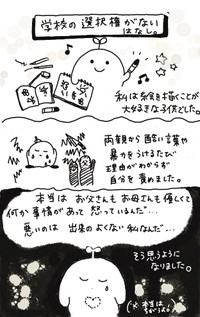 学校の選択権がない
はなし。
私は絵を描くことが
大好きな子供でした。
両親から酷い言葉や
暴力をうけるたび
理由がわからず
自分を責めました。
本当は お父さんも、お母さんも優しくて
何か事情があって 怒っているんだ…
悪いのは 出来のよくない私なんだ…
そう思うように
なりました。